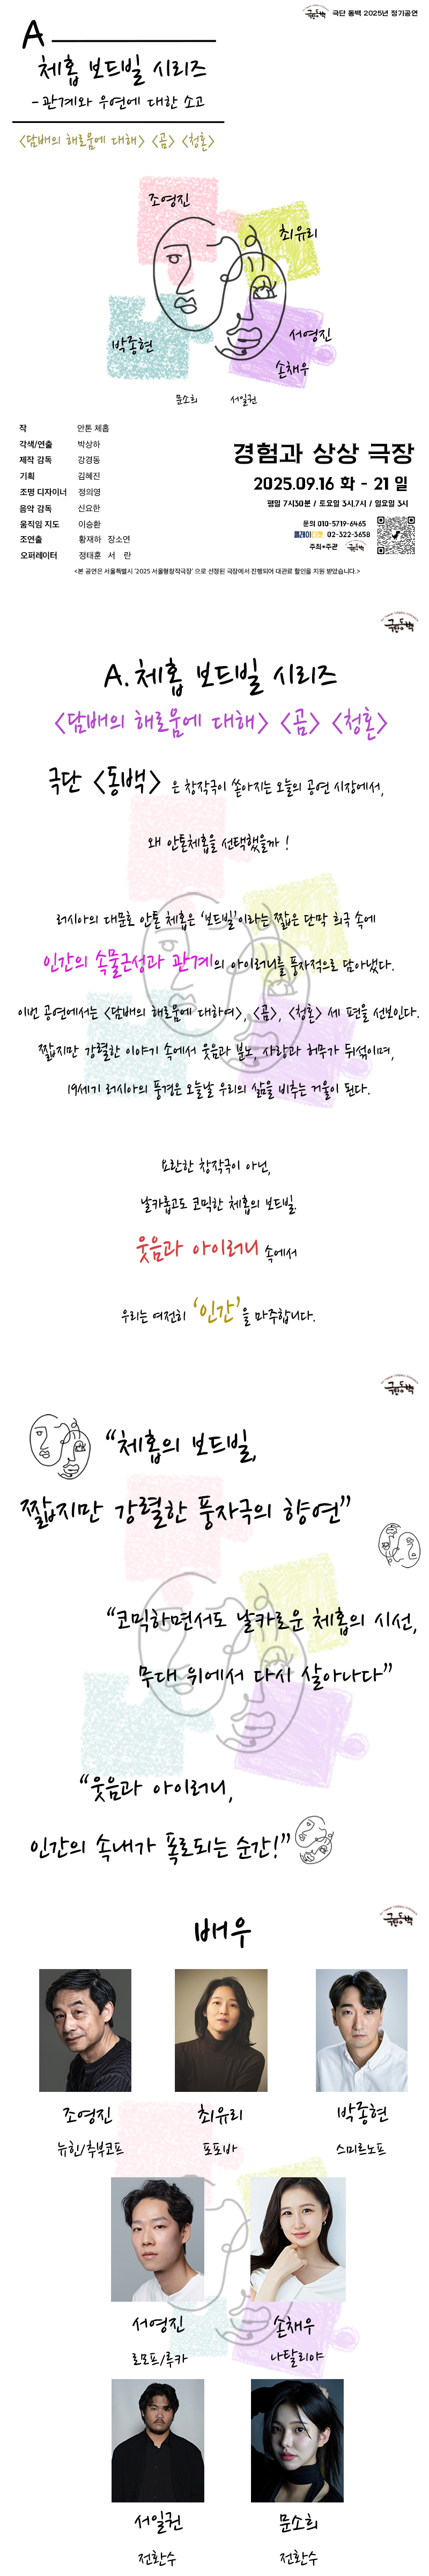 극단 동백 2025년 정기공연
A
체홉 보드빌 시리즈
-관계와 우연에 대한 소고
<담배의 해로움에 대해> <곰> <청혼>
조영진
최유리
박종현
서영진
손채우
문소희 서일권
작 안톤 체홉
각색/연출 박상하
제작 감독 강경동
기획 김혜진
조명 디자이너 정의영
음악 감독 신요한
움직임 지도 이승환
조연출 황재하 장소연
오퍼레이터 정태훈 서 란
경험과 상상 극장
2025.09.16 화 - 21 일
평일 7시30분 / 토요일 3시,7시 / 일요일 3시
문의 010-5719-6465
플레이티켓 02-322-3658
주최•주관
<본 공연은 서울특별시 '2025 서울형창작극장' 으로 선정된 극장에서 진행되어 대관료 할인을 지원 받았습니다.>
극단동백
A. 체홉 보드빌 시리즈
<담배의 해로움에 대해> <곰> <청혼>
극단 <동백> 은 창작극이 쏟아지는 오늘의 공연 시장에서,
왜 안톤체홉을 선택했을까 !
러시아의 대문호 안톤 체홉은 '보드빌'이라는 짧은 단막 희극 속에
인간의 속물근성과 관계의 아이러니를 풍자적으로 담아냈다.
이번 공연에서는 <담배의 해로움에 대하여>, <곰>, <청혼> 세 편을 선보인다.
짧지만 강렬한 이야기 속에서 웃음과 분노, 사랑과 허무가 뒤섞이며,
19세기 러시아의 풍경은 오늘날 우리의 삶을 비추는 거울이 된다.
요란한 창작극이 아닌,
날카롭고도 코믹한 체홉의 보드빌.
웃음과 아이러니 속에서
우리는 여전히 '인간'을 마주합니다.
극단동백
"체홉의 보드빌,
짧지만 강렬한 풍자극의 향연"
"코믹하면서도 날카로운 체홉의 시선,
무대 위에서 다시 살아나다"
"웃음과 아이러니,
인간의 속내가 폭로되는 순간!"
극단동백
배우
조영진 최유리 박종현
뉴힌/추부코프 포포바 스미르노프
서영진 손채우
로모프/루카 나탈리야
서일권 문소희
전환수 전환수